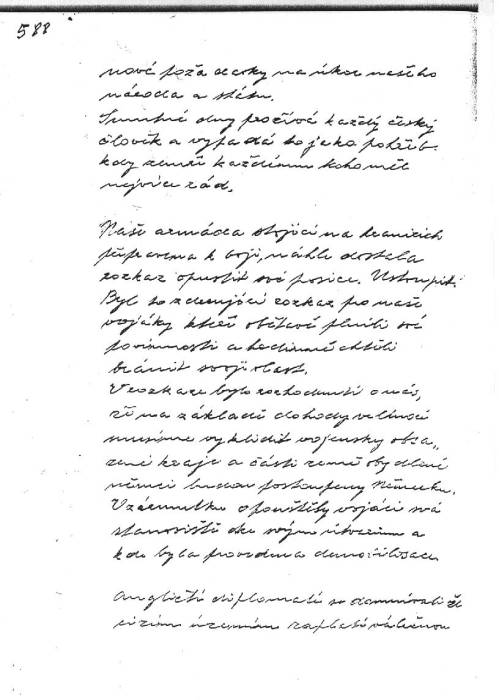 588
nové požadavky na úkor našeho
národa a státu.
Smutné dny prožívá každý český
člověk a vypadá to jako pohřeb
kdy zemře každému koho měl
nejvíce rád.
Naše armáda stojící na hranicích
připravena k boji, náhle dostala
rozkaz opustit své posice. Ustoupit.
Byl to zdrcující rozkaz pro naše
vojáky kteří obětavě plnili své
povinnosti a hodlaně chtěli
bránit svoji vlast.
V rozkaze bylo rozhodnutí o nás,
že na základě dohody velmocí
musíme vyklidit vojensky obsa„
zené kraje a části země obydlené
němci budou postoupeny Německu.
V zármutku opouštěly vojáci svá
stanoviště ke svým útvarům a
kde byla provedena demobilisace.
Angličtí diplomati se domnívali že
cizím územím zaplatí válečnou